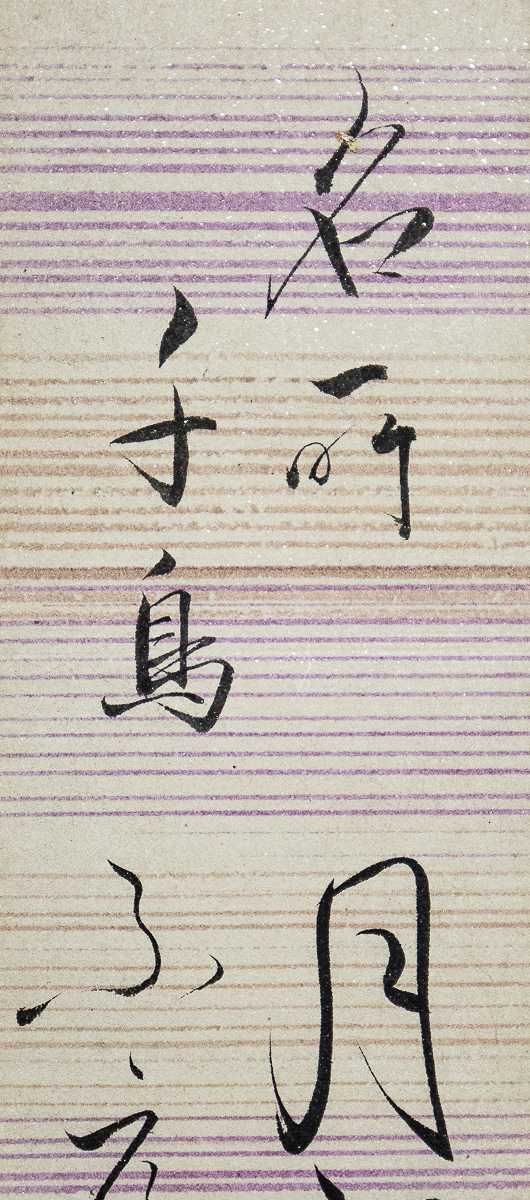 名所
千鳥
月
ふ